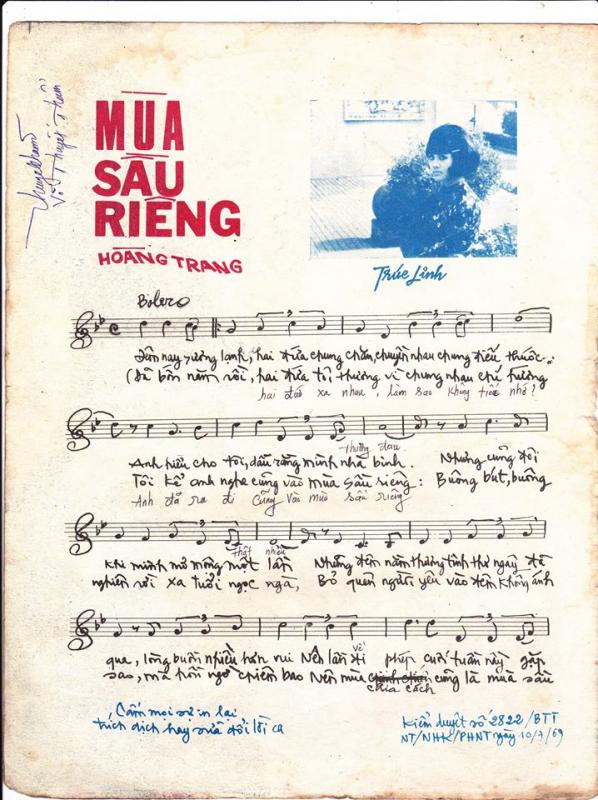 MÙA
SẦU
RIÊNG
HOÀNG TRANG
Trúc Linh
Bolero
Đêm nay sương lạnh, hai đứa chung chăn, chuyện nhau chung điếu thuốc.
(Đã bốn năm rồi, hai đứa tôi thương vì chung nhau chí hướng
hai đứa xa nhau, làm sao không tiếc nhớ?
thường đau
Anh hiểu cho tôi, dẫu rằng mình nhà binh. Nhưng cũng đôi
Tôi kể anh nghe cũng vào mùa sầu riêng: Buông bút, buông
Anh đã ra đi cũng vào mùa sầu riêng
thật nhiều
khi mình mơ mộng một lần Những đêm nằm thương tình thơ ngây đã
nghiên rồi xa tuổi ngọc ngà, Bỏ quên người yêu vào đêm không ánh
về
qua, lòng buồn nhiều hơn vui Nên lần đi phép cuối tuần này gặp
sao, mà hồi ngỡ chiêm bao Nên mùa cũng là mùa sầu
chia cách
Cấm mọi sự in lại
trích dịch hay sửa đổi lời ca
Kiểm duyệt số 2822/BTT
NT/NHK/PHNT ngày 10/7/69